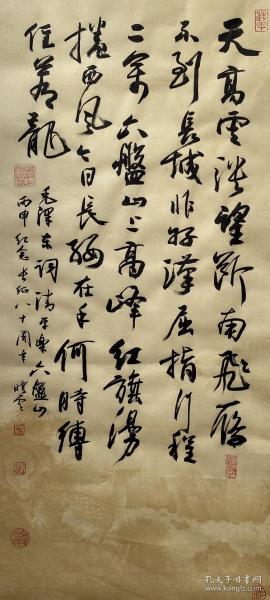 天高雲淡望斷南飛雁
不到長城非好漢屈指行程
二萬六盤山上高峰紅旗漫
捲西風今日長纓在手何時縛
住蒼龍
毛澤東詞清平樂六盤山
丙申紀念長征八十周年
孔夫子旧书网
kongfz.com